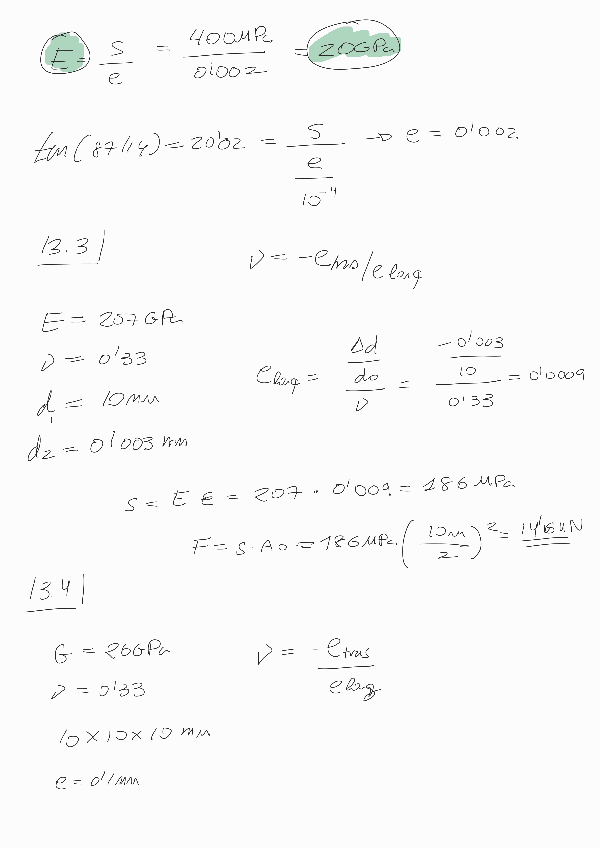 E = S/e = 400MPa/0'002 = 20GPa
tan(87'14) = 20'02 = S/(e/10^-4) → e = 0'002
13.3
ν = -e tras/e long
E = 207 GPa
ν = 0'33
d1 = 10mm
d2 = 0'003 mm
e long = (Δd/do)/ν = (-0'003/10)/0'33 = 0'0009
S = E e = 207 · 0'009 = 186 MPa
F = S·Ao = 186 MPa (10m/2)^2 = 14'6 kN
13.4
G = 26GPa
ν = 0'33
ν = -e tras/e long
10 × 10 × 10 mm
e = 0'1mm